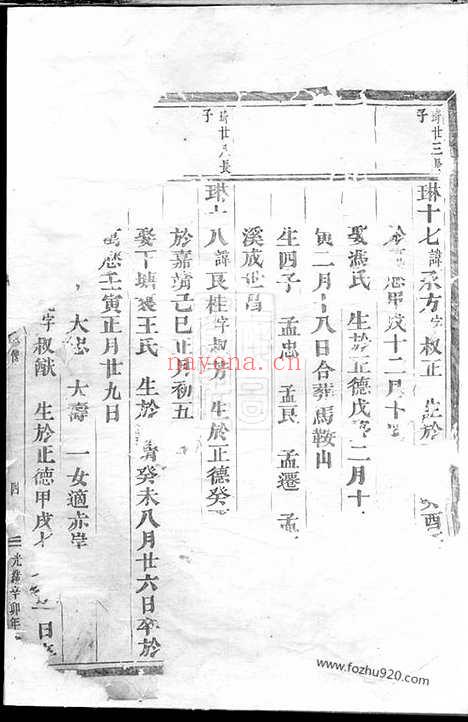 琦世三長子
琳十七諱 方字叔正 生於 癸酉
甲戌十二月十
娶馮氏 生於正德戊 二月十
寅二月十八日合葬馬鞍山
生四子 孟忠 孟良 孟遷 孟
溪咸世昌
琦世八長子
琳十八諱良桂字叔芳 生於正德癸
於嘉靖己巳正月初五
娶下塘裴王氏 生於 靖癸未八月廿六日卒於
萬曆壬寅正月廿九日
大忠 大壽 一女適赤岸
字叔猷 生於正德甲戌 日
四 光緒辛卯年
nayona.cn
www.fozhu920.com